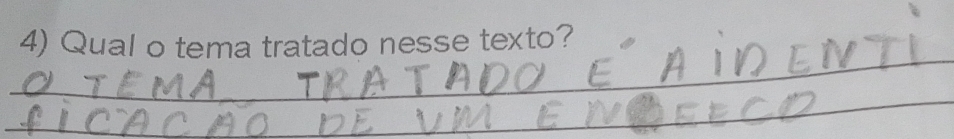 4) Qual o tema tratado nesse texto?
O TEMA TRATADO E' A iDENTI
fiCACAO DE UM